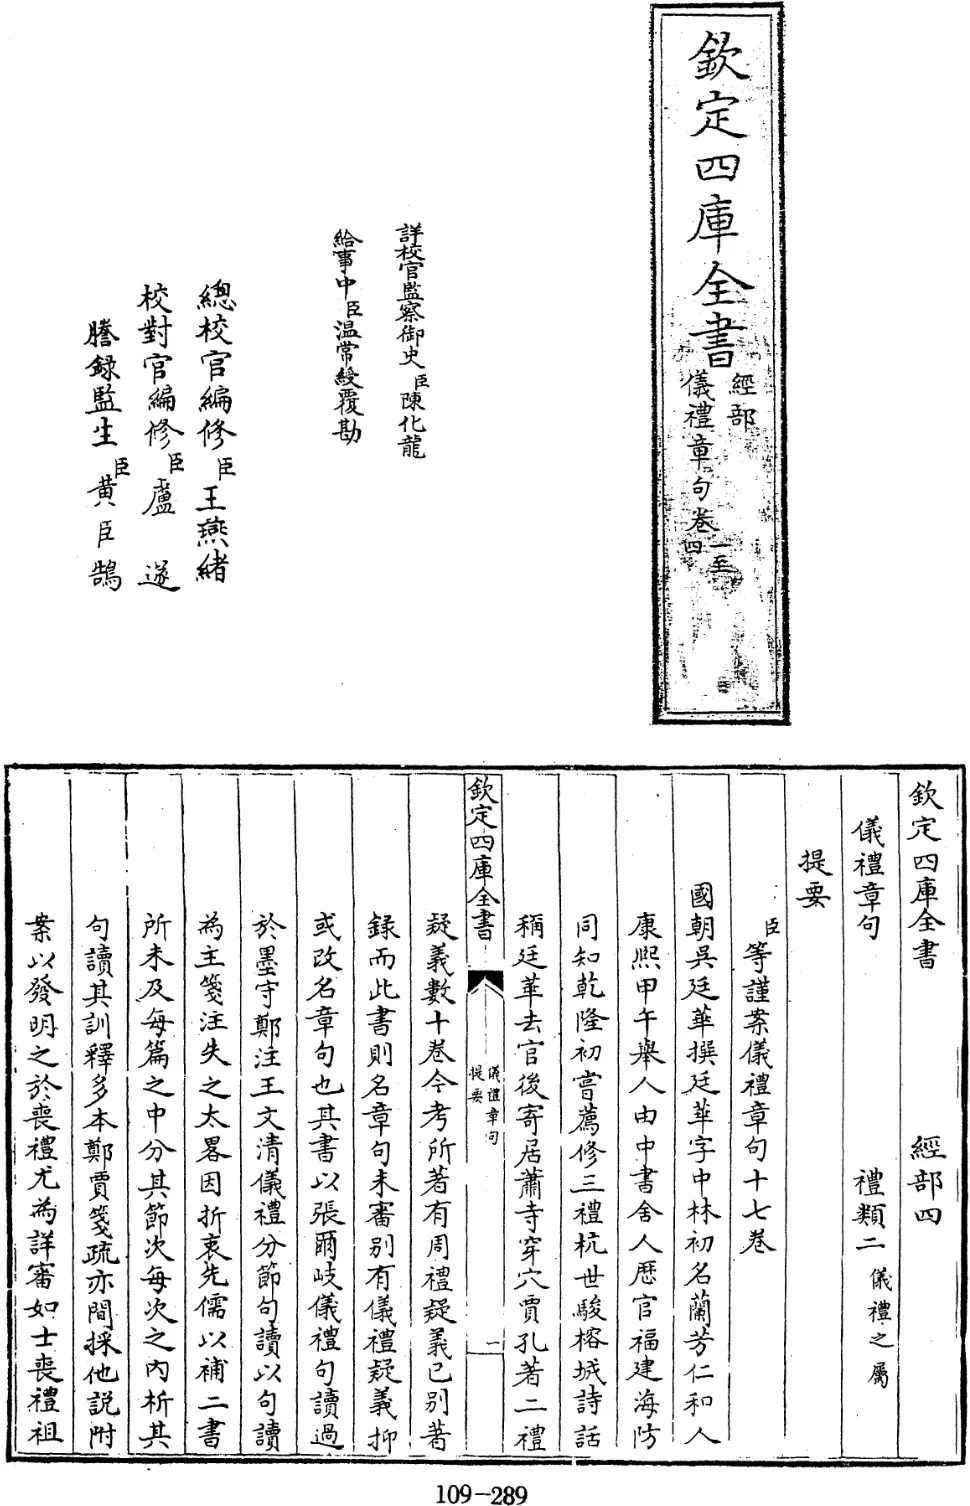 欽定四庫全書
經部
儀禮章句卷一至四
詳校官監察御史臣陳化龍
給事中臣温常綬覆勘
總校官編修臣王燕緒
校對官編修臣盧遂
謄錄監生臣黃臣鵠
欽定四庫全書 經部四
儀禮章句 禮類二儀禮之屬
提要
臣等謹案儀禮章句十七卷
國朝吳廷華撰廷華字中林初名蘭芳仁和人
康熙甲午舉人由中書舍人歴官福建海防
同知乾隆初嘗薦修三禮杭世駿榕城詩話
稱廷華去官後寄居蕭寺穿穴賈孔著二禮
欽定四庫全書 儀禮章句提要 一
疑義數十卷今考所著有周禮疑義已别著
録而此書則名章句未審别有儀禮疑義抑
或改名章句也其書以張爾岐儀禮句讀過
於墨守鄭注王文清儀禮分節句讀以句讀
為主箋注失之太畧因折衷先儒以補二書
所未及每篇之中分其節次每次之內析其
句讀其訓釋多本鄭賈箋疏亦間採他説附
案以發明之於喪禮尤為詳審如士喪禮祖
109-289